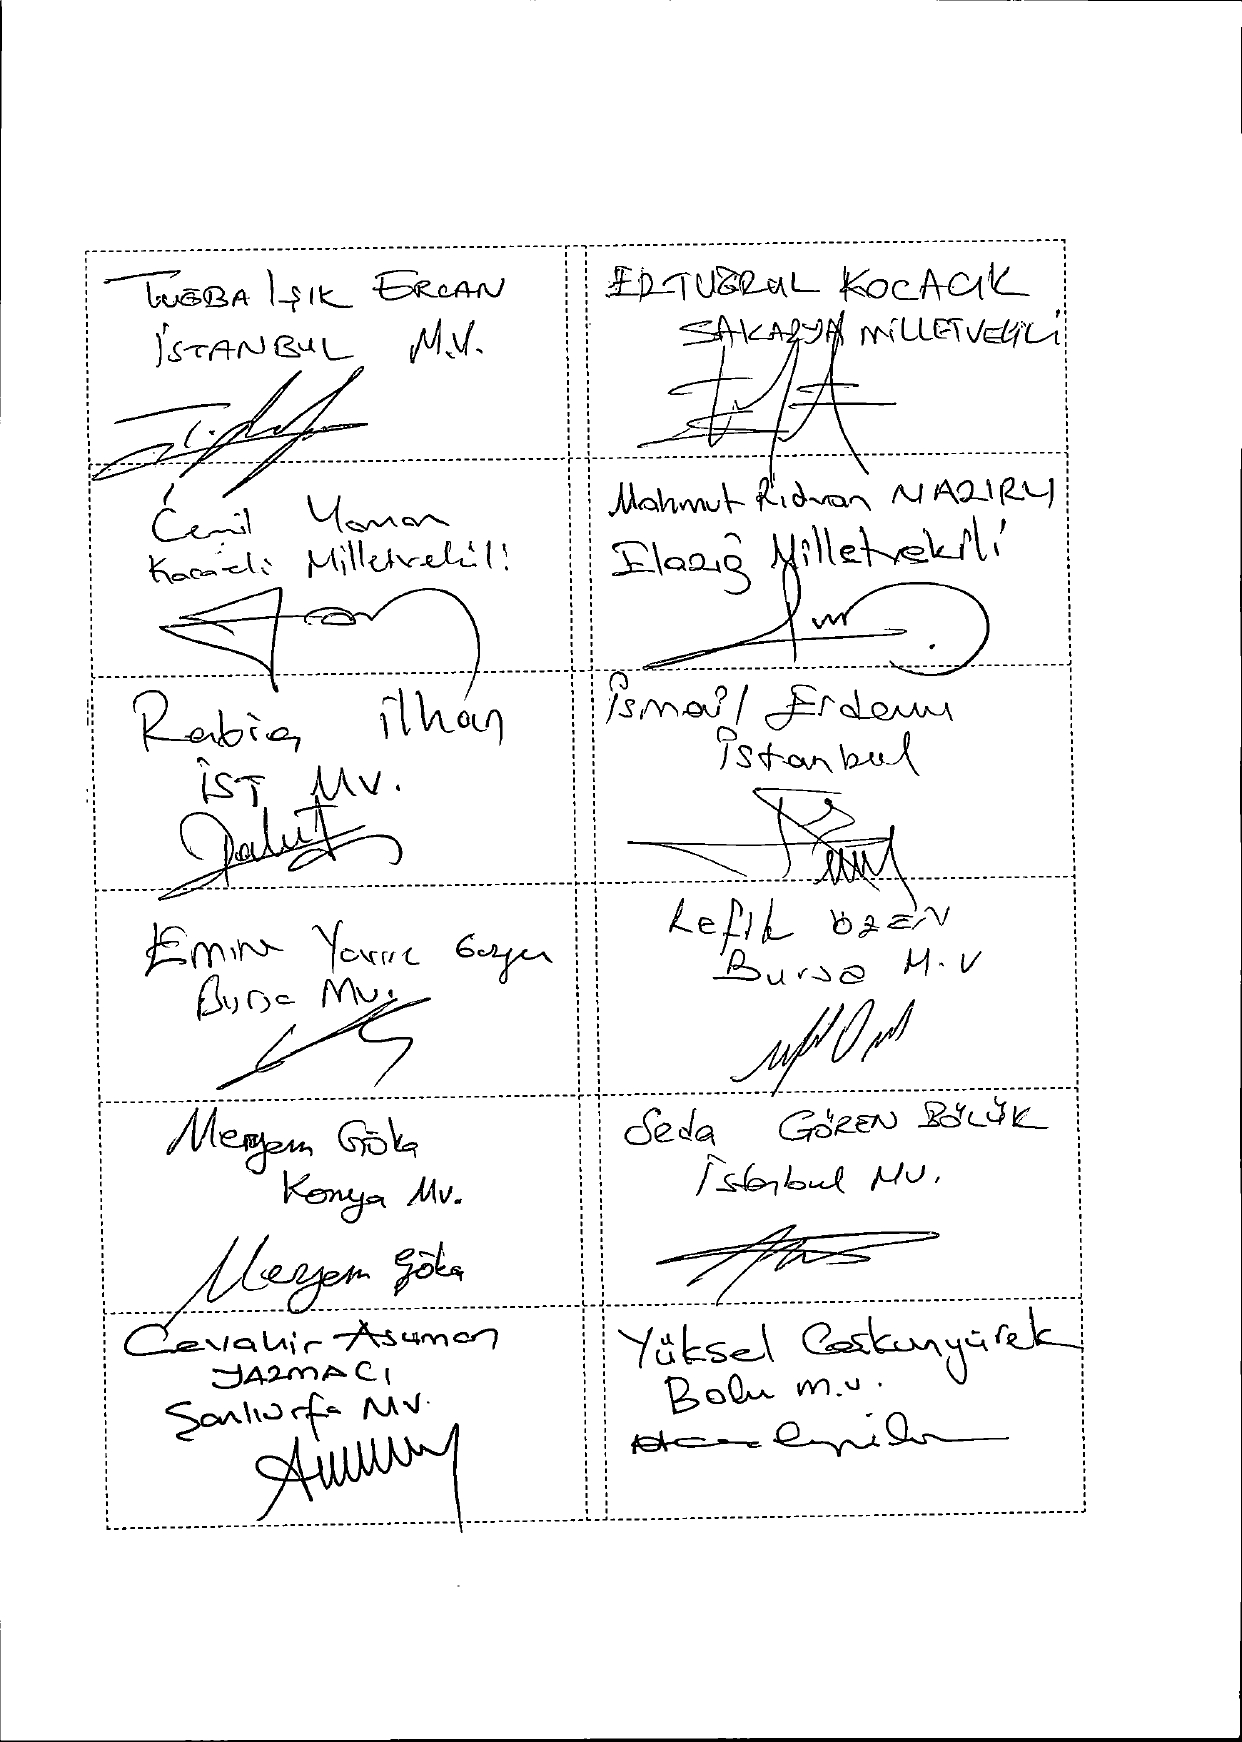 TUĞBA IŞIK ERCAN
İSTANBUL M.V.
ERTUĞRUL KOCACIK
SAKARYA MİLLETVEKİLİ
Cemil Yaman
Kocaeli Milletvekili
Mahmut Rıdvan NAZIRLI
Elazığ Milletvekili
Rabia ilhan
İST MV.
İsmail Erdem
İstanbul
Emine Yavuz Gözgeç
Bursa Mv.
Refik ÖZEN
Bursa M.V
Meryem Göka
Konya Mv.
Meryem Göka
Seda GÖREN BÖLÜK
İstanbul Mv.
Cevahir Asuman
YAZMACI
Şanlıurfa MV.
Yüksel Coşkunyürek
Bolu m.v.